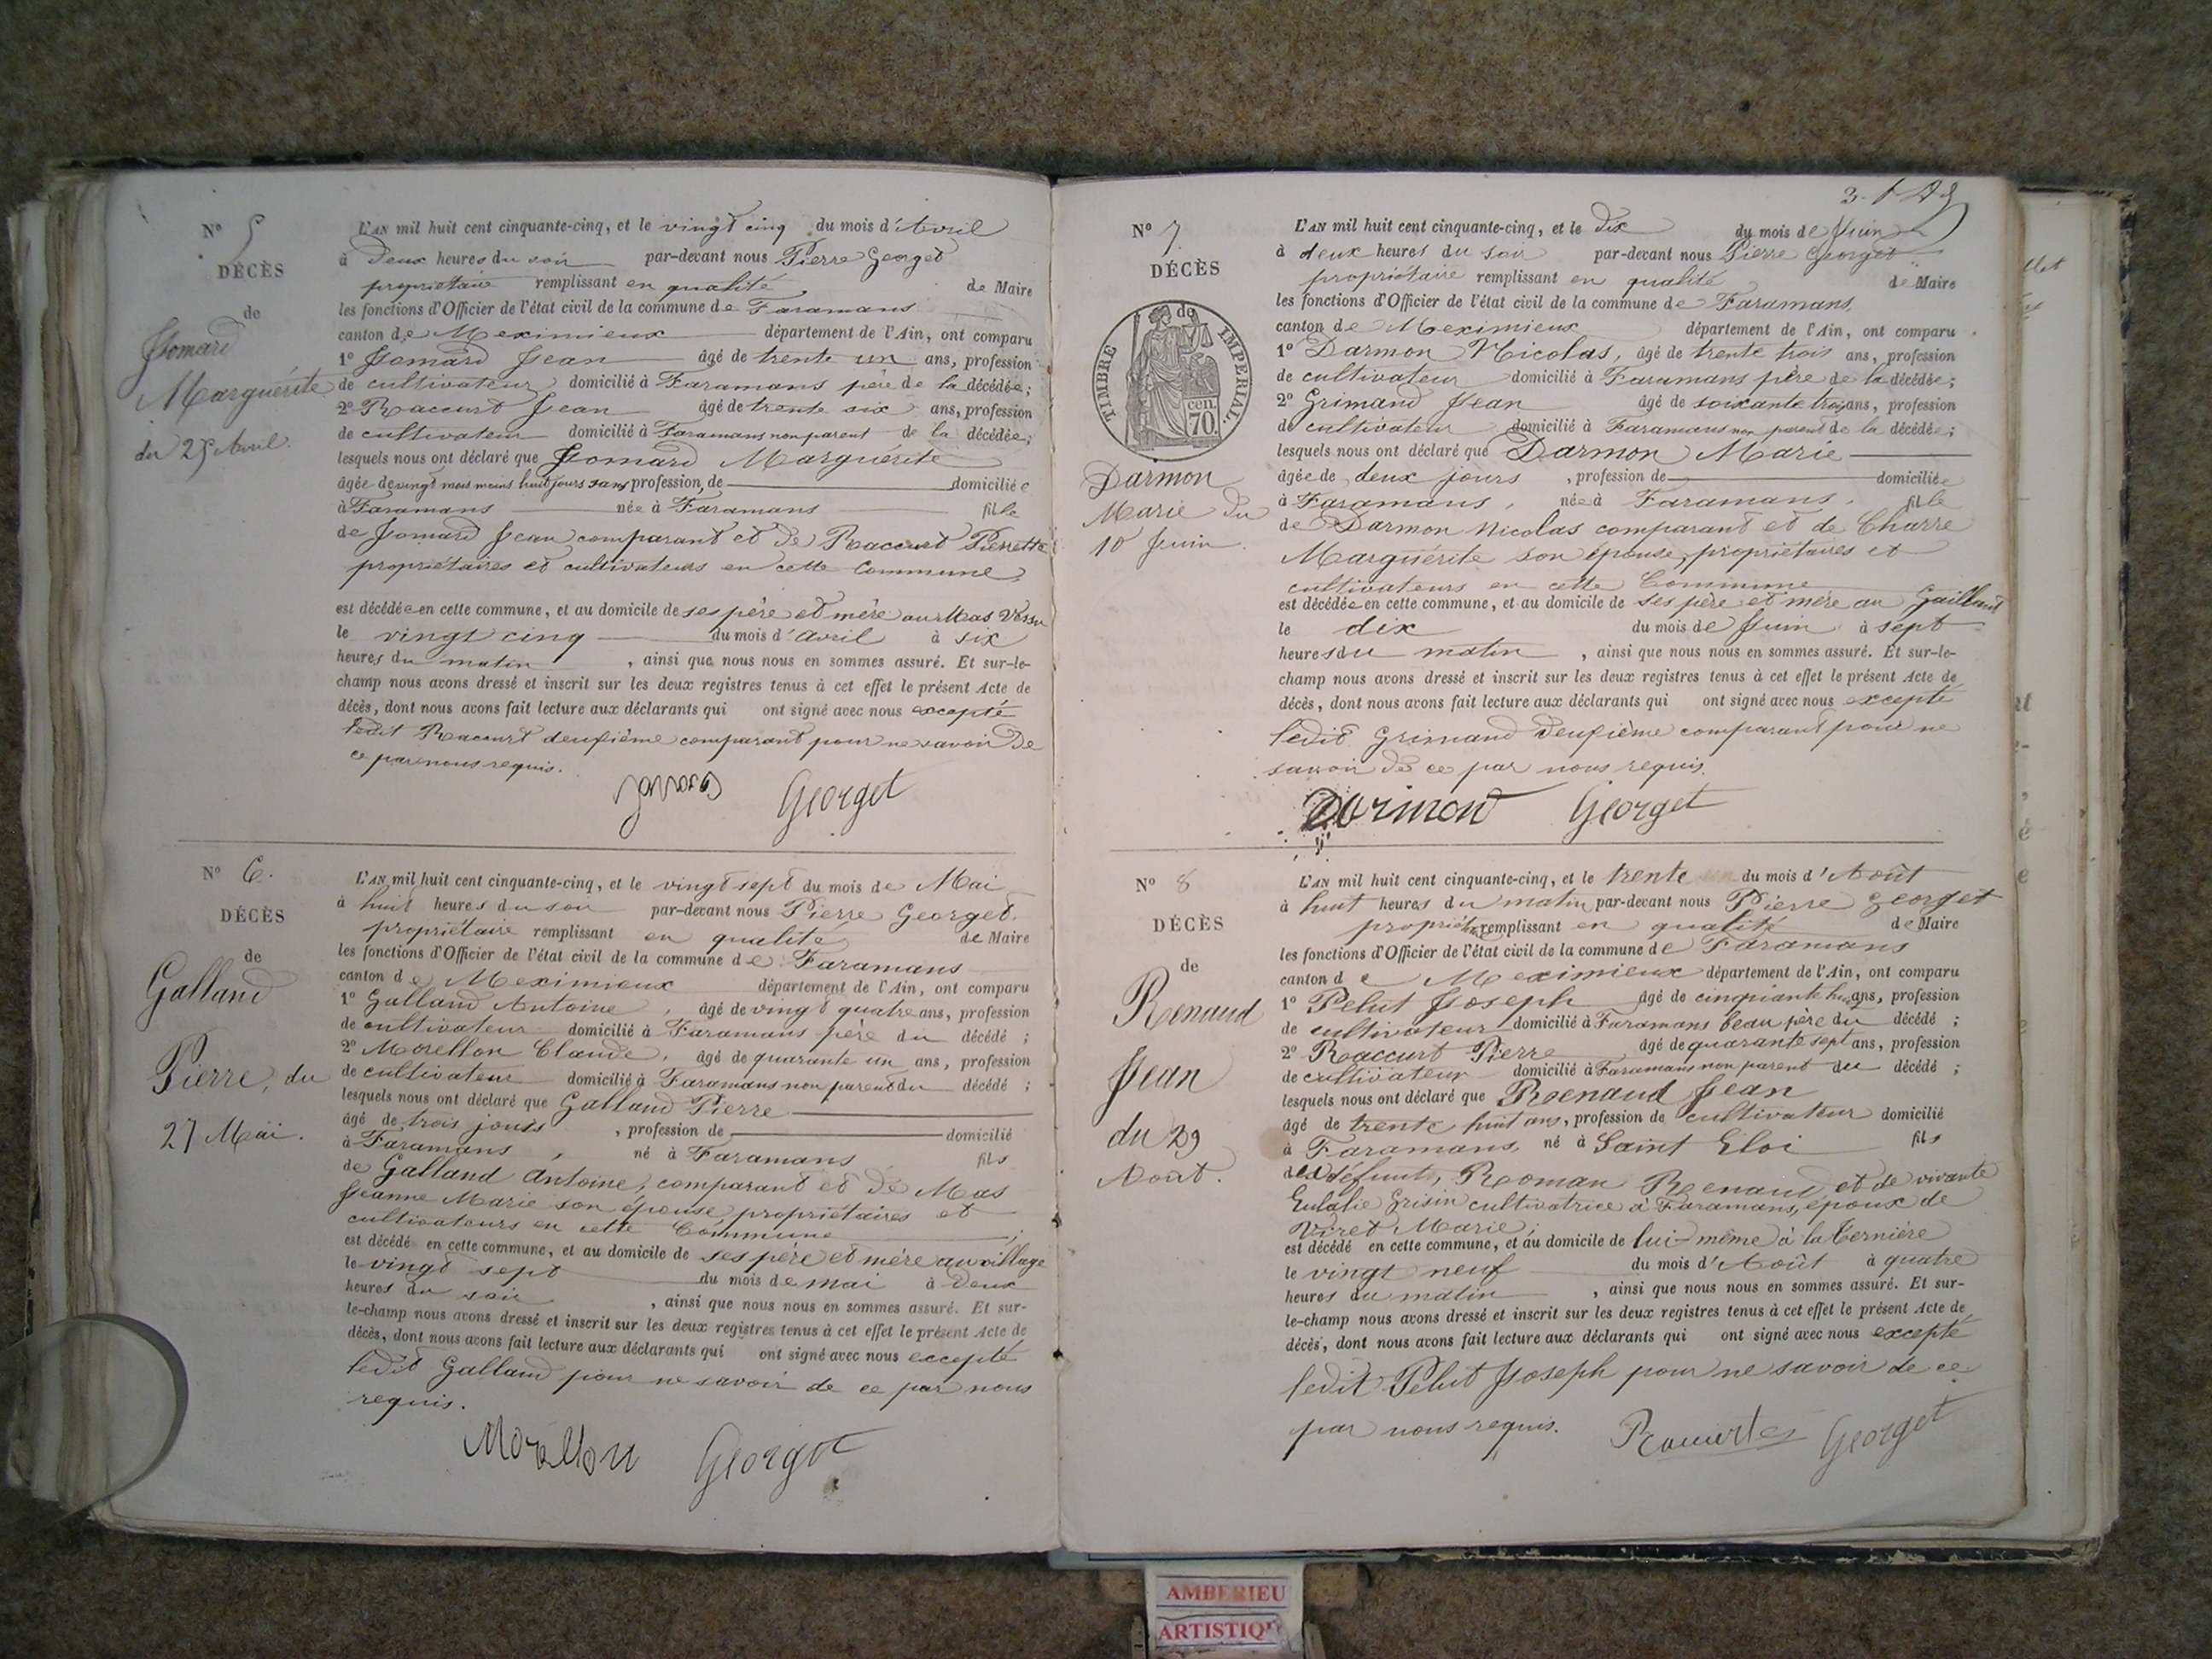 N° 5
DÉCÈS
de
Jomard
Marguérite
du 25 Avril.
L'AN mil huit cent cinquante-cinq, et le vingt cinq du mois d'Avril
à Deux heures du soir par-devant nous Pierre Georget
propriétaire remplissant en qualité de Maire
les fonctions d'Officier de l'état civil de la commune de Faramans
canton de Meximieux département de l'Ain, ont comparu
1° Jomard Jean âgé de trente un ans, profession
de cultivateur domicilié à Faramans père de la décédée;
2° Raccurt Jean âgé de trente six ans, profession
de cultivateur domicilié à Faramans non parent de la décédée;
lesquels nous ont déclaré que Jomard Marguérite
âgée de vingt mois moins huit jours sans profession, de domiciliée
à Faramans née à Faramans fille
de Jomard Jean comparant et de Raccurt Pierrette
propriétaires et cultivateurs en cette Commune,
est décédée en cette commune, et au domicile de ses père et mère au Mas
le vingt cinq du mois d'avril à six
heures du matin, ainsi que nous nous en sommes assuré. Et sur-le-
champ nous avons dressé et inscrit sur les deux registres tenus à cet effet le présent Acte de
décès, dont nous avons fait lecture aux déclarants qui ont signé avec nous excepté
ledit Raccurt deuxième comparant pour ne savoir De
ce par nous requis.
Georget
N° 6.
DÉCÈS
de
Galland
Pierre, du
27 Mai.
L'AN mil huit cent cinquante-cinq, et le vingt sept du mois de Mai
à huit heures du soir par-devant nous Pierre Georget.
propriétaire remplissant en qualité de Maire
les fonctions d'Officier de l'état civil de la commune de Faramans
canton de Meximieux département de l'Ain, ont comparu
1° Galland Antoine, âgé de vingt quatre ans, profession
de cultivateur domicilié à Faramans père du décédé ;
2° Morellon Claude, âgé de quarante un ans, profession
de cultivateur domicilié à Faramans non parent du décédé ;
lesquels nous ont déclaré que Galland Pierre
âgé de trois jours, profession de domicilié
à Faramans, né à Faramans fils
de Galland Antoine, comparant et de Mas
Jeanne Marie son épouse propriétaires et
cultivateurs en cette Commune ;
est décédé en cette commune, et au domicile de ses père et mère au village
le vingt sept du mois de mai à Deux
heures du soir, ainsi que nous nous en sommes assuré. Et sur-
le-champ nous avons dressé et inscrit sur les deux registres tenus à cet effet le présent Acte de
décès, dont nous avons fait lecture aux déclarants qui ont signé avec nous excepté
ledit Galland pour ne savoir de ce par nous
requis.
Morellon Georget
N° 7.
DÉCÈS
de
TIMBRE IMPERIAL.
cen. 70
Darmon
Marie Du
10 Juin.
L'AN mil huit cent cinquante-cinq, et le Dix du mois de Juin
à deux heures du soir par-devant nous Pierre Georget
propriétaire remplissant en qualité de Maire
les fonctions d'Officier de l'état civil de la commune de Faramans,
canton de Meximieux département de l'Ain, ont comparu
1° Darmon Nicolas, âgé de trente trois ans, profession
de cultivateur domicilié à Faramans père de la décédée;
2° Grimand Jean âgé de soixante trois ans, profession
de cultivateur domicilié à Faramans non parent de la décédée;
lesquels nous ont déclaré que Darmon Marie
âgée de deux jours, profession de domiciliée
à Faramans, née à Faramans, fille
de Darmon Nicolas comparant et de Charre
Marguérite son épouse, propriétaires et
cultivateurs en cette Commune
est décédée en cette commune, et au domicile de ses père et mère au
le dix du mois de Juin à sept
heures du matin, ainsi que nous nous en sommes assuré. Et sur-le-
champ nous avons dressé et inscrit sur les deux registres tenus à cet effet le présent Acte de
décès, dont nous avons fait lecture aux déclarants qui ont signé avec nous excepté
ledit Grimand Deuxième comparant pour ne
savoir de ce par nous requis.
Darmon Georget
N° 8
DÉCÈS
de
Renaud
Jean
du 29
Août.
L'AN mil huit cent cinquante-cinq, et le trente du mois d'Août
à huit heures du matin par-devant nous Pierre Georget
propriétaire remplissant en qualité de Maire
les fonctions d'Officier de l'état civil de la commune de Faramans
canton de Meximieux département de l'Ain, ont comparu
1° Pelut Joseph âgé de cinquante huit ans, profession
de cultivateur domicilié à Faramans beau père du décédé ;
2° Raccurt Pierre âgé de quarante sept ans, profession
de cultivateur domicilié à Faramans non parent du décédé ;
lesquels nous ont déclaré que Renaud Jean
âgé de trente huit ans, profession de cultivateur domicilié
à Faramans, né à Saint Eloi fils
de défunt, Roman Renaud et de vivante
Eulalie Grisin cultivatrice à Faramans, époux de
Viret Marie;
est décédé en cette commune, et au domicile de lui-même à la Ternière
le vingt neuf du mois d'Août à quatre
heures du matin, ainsi que nous nous en sommes assuré. Et sur-
le-champ nous avons dressé et inscrit sur les deux registres tenus à cet effet le présent Acte de
décès, dont nous avons fait lecture aux déclarants qui ont signé avec nous excepté
ledit Pelut Joseph pour ne savoir de ce
par nous requis.
Georget
AMBERIEU
ARTISTIQ